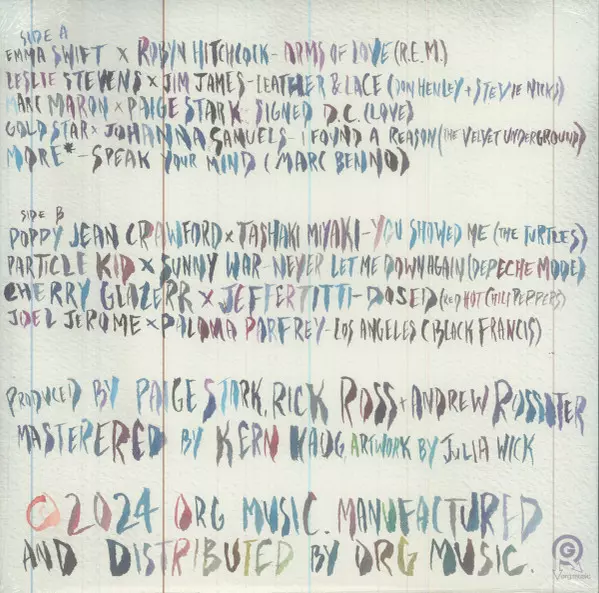 SIDE A
EMMA SWIFT x ROBYN HITCHCOCK - ARMS OF LOVE (R.E.M.)
LESLIE STEVENS x JIM JAMES - LEATHER & LACE (DON HENLEY + STEVIE NICKS)
MARC MARON x PAIGE STARK - SIGNED D.C. (LOVE)
GOLD STAR x JOHANNA SAMUELS - I FOUND A REASON (THE VELVET UNDERGROUND)
MORE* - SPEAK YOUR MIND (MARC BENNO)
SIDE B
POPPY JEAN CRAWFORD x TASHAKI MIYAKI - YOU SHOWED ME (THE TURTLES)
PARTICLE KID x SUNNY WAR - NEVER LET ME DOWN AGAIN (DEPECHE MODE)
CHERRY GLAZERR x JEFFERTITTI - DOSED (RED HOT CHILI PEPPERS)
JOEL JEROME x PALOMA PARFREY - LOS ANGELES (BLACK FRANCIS)
PRODUCED BY PAIGE STARK, RICK ROSS + ANDREW ROSSITER
MASTERERED BY KERN HAUG ARTWORK BY JULIA WICK
© 2024 ORG MUSIC. MANUFACTURED
AND DISTRIBUTED BY ORG MUSIC.